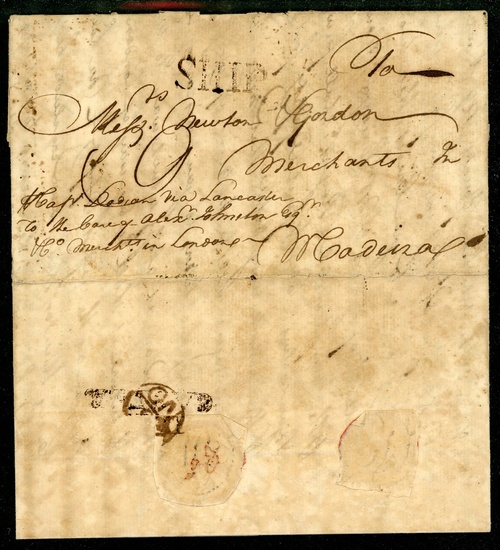 SHIP
To
Messrs. Newton & Gordon
Merchants In
⅌ Capt Via Lancaster
To the Care of Alexr. Johnston Esqr.
& Co. Merchts in London
Madeira